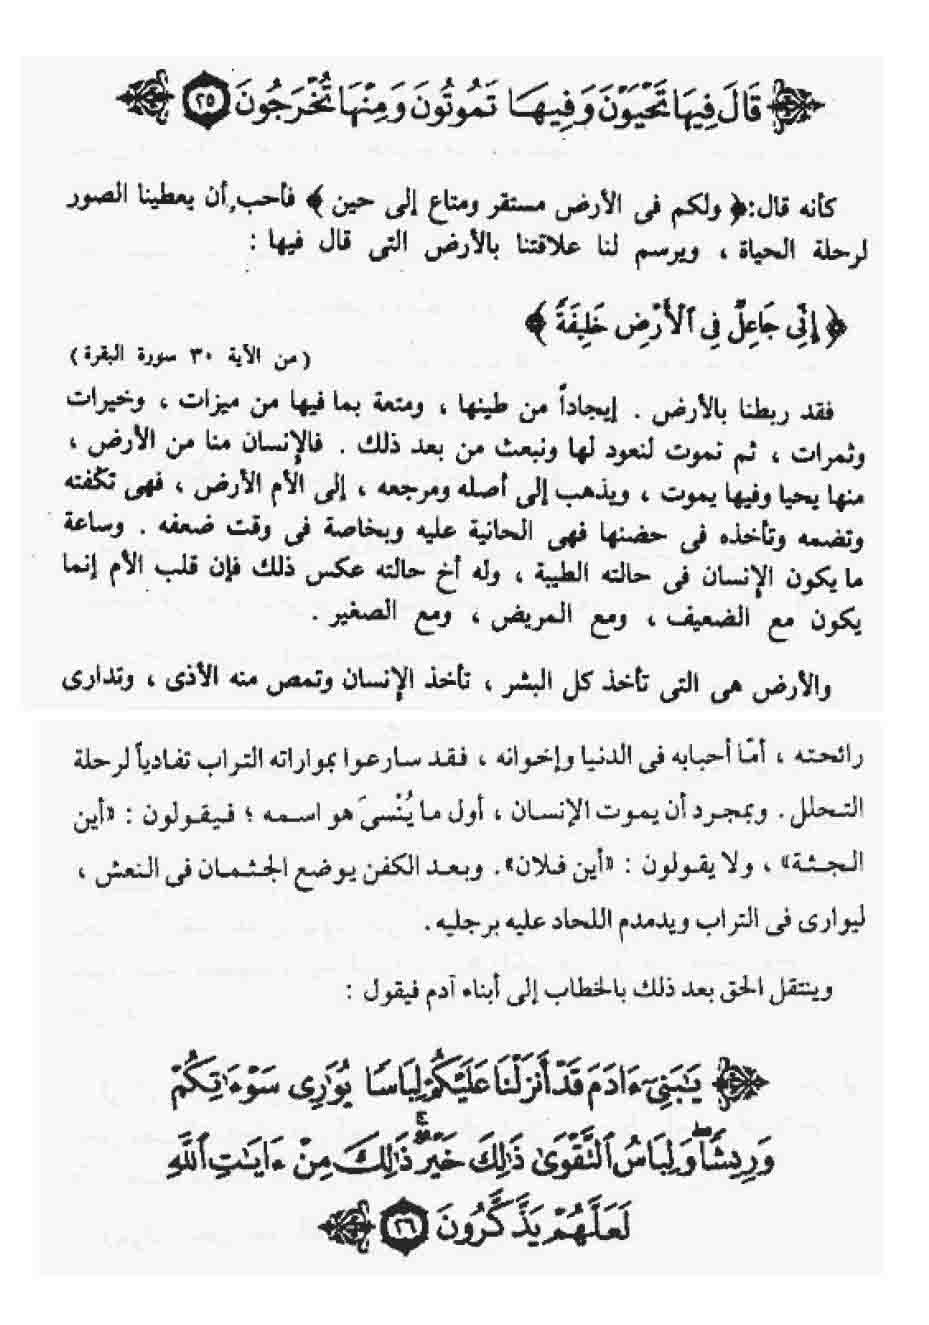 قَالَ فِيهَا تَحْيَوْنَ وَفِيهَا تَمُوتُونَ وَمِنْهَا تُخْرَجُونَ ٢٥
كأنه قال:﴿ ولكم فى الأرض مستقر ومتاع إلى حين ﴾ فأحب أن يعطينا الصور
لرحلة الحياة ، ويرسم لنا علاقتنا بالأرض التى قال فيها :
﴿ إِنِّي جَاعِلٌ فِي ٱلْأَرْضِ خَلِيفَةً ﴾
( من الآية ٣٠ سورة البقرة )
فقد ربطنا بالأرض . إيجاداً من طينها ، ومتعة بما فيها من ميزات ، وخيرات
وثمرات ، ثم نموت لنعود لها ونبعث من بعد ذلك . فالإنسان منا من الأرض ،
منها يحيا وفيها يموت ، ويذهب إلى أصله ومرجعه ، إلى الأم الأرض ، فهى تكفته
وتضمه وتأخذه فى حضنها فهى الحانية عليه وبخاصة فى وقت ضعفه . وساعة
ما يكون الإنسان فى حالته الطيبة ، وله أخ حالته عكس ذلك فإن قلب الأم إنما
يكون مع الضعيف ، ومع المريض ، ومع الصغير .
والأرض هى التى تأخذ كل البشر ، تأخذ الإنسان وتمص منه الأذى ، وتدارى
رائحته ، أمّا أحبابه فى الدنيا وإخوانه ، فقد سارعوا بمواراته التراب تفادياً لرحلة
التحلل . وبمجرد أن يموت الإنسان ، أول ما يُنْسىَ هو اسمه ؛ فيقولون : «أين
الجثة» ، ولا يقولون : «أين فلان». وبعد الكفن يوضع الجثمان فى النعش ،
ليوارى فى التراب ويدمدم اللحاد عليه برجليه .
وينتقل الحق بعد ذلك بالخطاب إلى أبناء آدم فيقول :
يَٰبَنِىٓ ءَادَمَ قَدْ أَنزَلْنَا عَلَيْكُمْ لِبَاسًا يُوَٰرِى سَوْءَٰتِكُمْ
وَرِيشًا ۖ وَلِبَاسُ ٱلتَّقْوَىٰ ذَٰلِكَ خَيْرٌ ۚ ذَٰلِكَ مِنْ ءَايَٰتِ ٱللَّهِ
لَعَلَّهُمْ يَذَّكَّرُونَ ٢٦